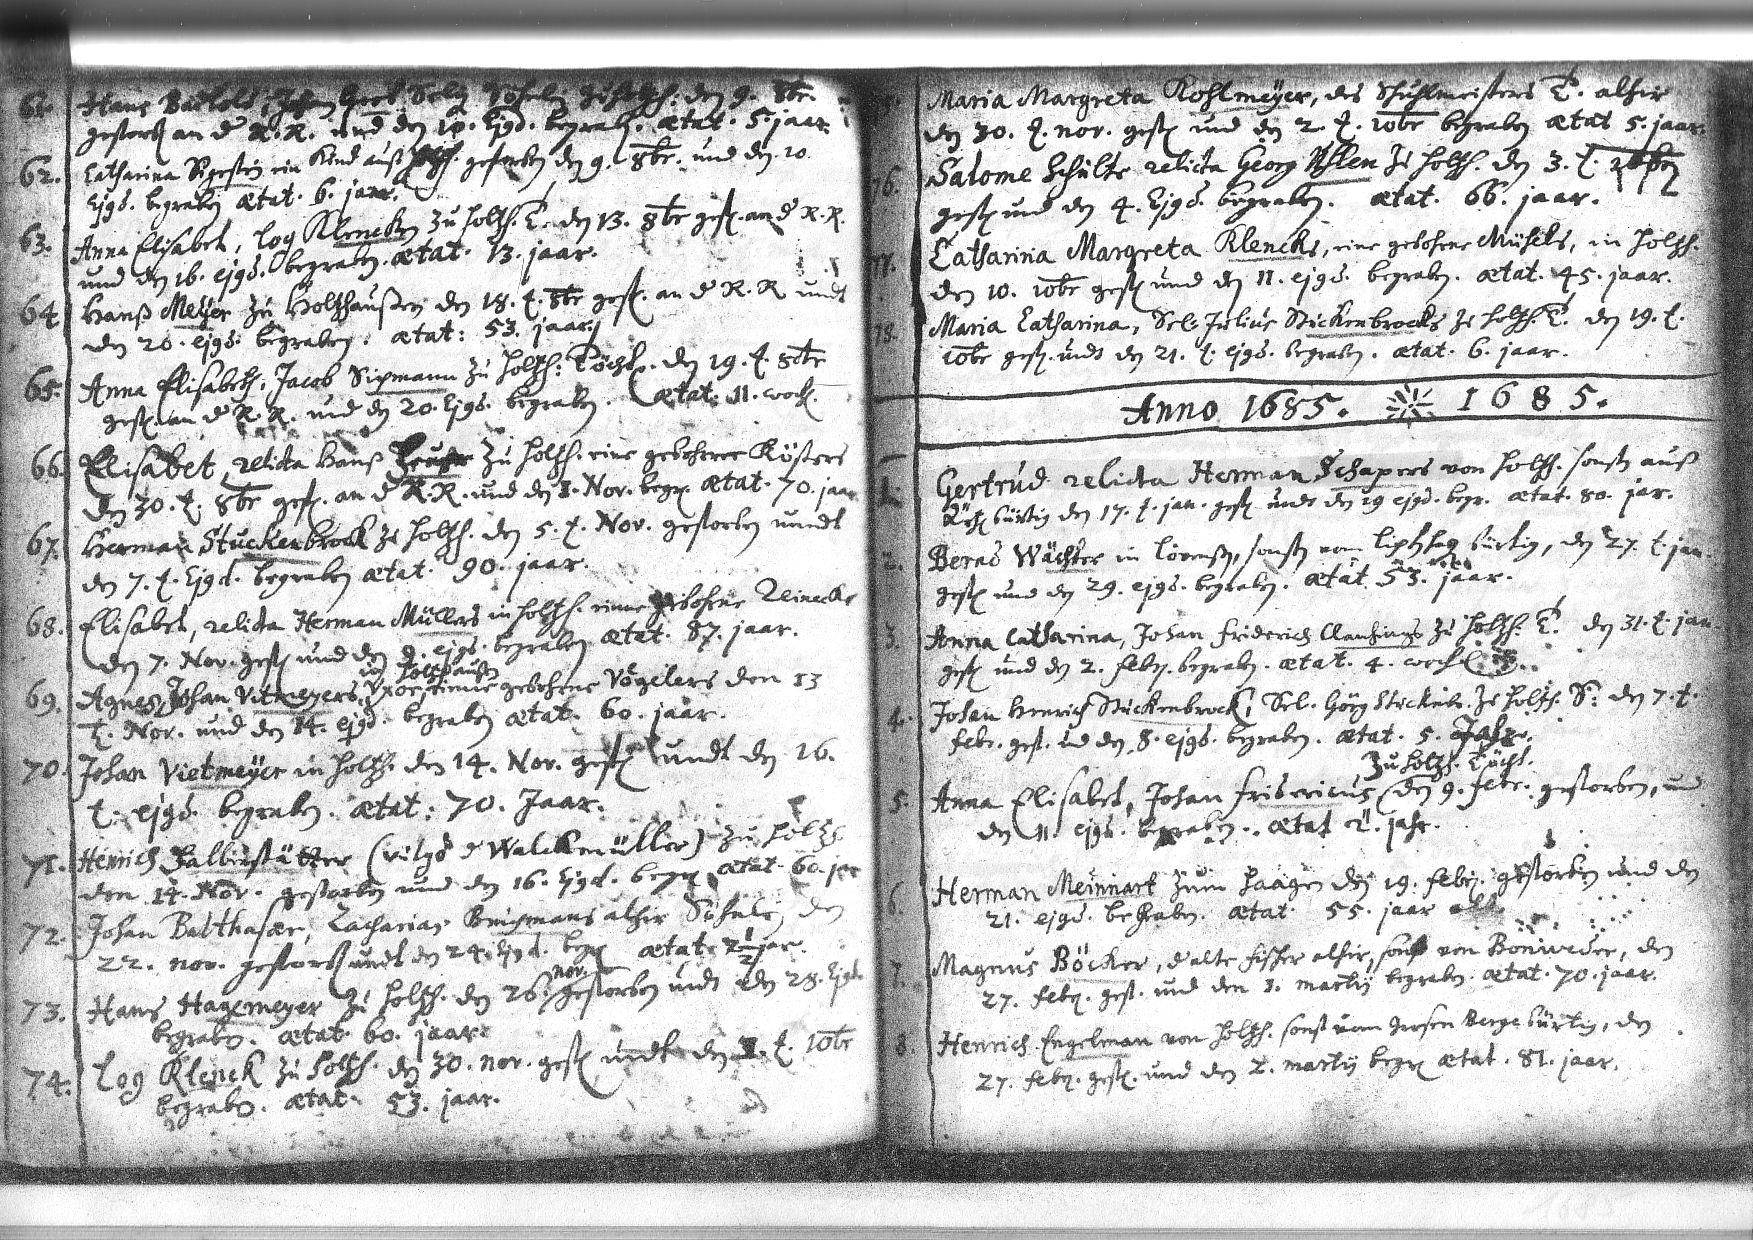 61. Hans Bartold, Johan Sel. Söhnlein zu Holtzh. den 9. 8br.
gestorb. an d. R.R. und den 10. Ejgd. begrab. ætat. 5. jaar.
62. Catharina ein Kind auß Holtzh. gestorben den 9. 8br. und den 20
Ejgd. begraben ætat. 6. jaar.
63. Anna Elisabet, Log Klencken zu Holtzh. T. den 13. 8br gest. an d. R.R.
und den 16. ejgd. begraben. ætat. 13. jaar.
64. Hanß Meÿer zu Holtzhaußen den 18. t. 8br gest. an d. R.R undt
den 20. ejgd. begraben. ætat: 53. jaar
65. Anna Elisabeth, Jacob Sipmann zu Holtzh. Töcht. den 19. t. 8br
gest. an d. R.R. und den 20. Ejgd. begraben. ætat. 11. woch.
66. Elisabet, relicta Hanß zu Holtzh. eine gebohrne Kösters
den 30. t. 8br gest. an d. R.R. und den 1. Nov. begr. ætat. 70. jaar
67. Herman Stuckenbrock zu Holtzh. den 5. t. Nov. gestorben unndt
den 7. t. Ejgd. begraben ætat. 90. jaar.
68. Elisabet, relicta Herman Müllers in Holtzh. eine gebohrne Reinecke
den 7. Nov. gest. und den 9. ejgd. begraben ætat. 87. jaar.
in Holtzhaußen
69. Agnes, Johan Vitmeyers, Vxor, eine gebohrne Vögelers den 13
t. Nov. und den 14. ejgd. begraben ætat. 60. jaar.
70. Johan Vietmeÿer in Holtzh. den 14. Nov. gest. undt den 16.
t. ejgd. begraben. ætat: 70. Jaar.
71. Henrich Halberstätter (vulgo d. Walckemüller) zu Holtzh
den 14. Nov. gestorben und den 16. Ejgd. begr. ætat. 60. jar
72. Johan Balthasar, Zacharias Brugmans alhir Söhnl. den
22. nov. gestorb. undt den 24. Ejgd. begr. ætat. 2½ jar.
nov.
73. Hans Hagemeyer zu Holtzh. den 26. gestorben undt den 28. Ejgd.
begraben. ætat. 60. jaar.
74. Log Klenck zu Holtzh. den 30. nov. gest. undt den 1. t. 10br
begraben. ætat. 53. jaar.
Maria Margreta Kohlmeÿer, des Schuhlmeisters T. alhir
den 30. t. nov. gest. und den 2. t. 10br begraben ætat 5. jaar.
76. Salome Schulte relicta Georg zu Holtzh. den 3. t.
gest. und den 4. Ejgd. begraben. ætat. 66. jaar.
77. Catharina Margreta Klencks, eine gebohrne in Holtzh.
den 10. 10br gest. und den 11. ejgd. begraben. ætat. 45. jaar.
78. Maria Catharina, Sel. Julius Stuckenbrocks zu Holtzh. T. den 19. t.
10br gest. undt den 21. t. ejgd. begraben. ætat. 6. jaar.
Anno 1685. 1685.
1. Gertrud relicta Herman Schapers von Holtzh. sonst auß
bürtig den 17. t. jan. gest. undt den 19 ejgd. begr. ætat. 80. jar.
2. Berns Wächter in sonst vom bürtig, den 27. t. jan.
gest. und den 29. ejgd. begraben. ætat. 53. jaar.
3. Anna Catharina, Johan Friderich Clausings zu Holtzh. T. den 31. t. jan
gest. und den 2. febr. begraben. ætat. 4. woch.
4. Johan Henrich Stuckenbrock, Sel. Görg Stuckenbr. zu Holtzh. S. den 7. t.
febr. gest. und den 8. ejgd. begraben. ætat. 5. Jahr.
zu Holtzh. Töcht.
5. Anna Elisabet, Johan Fridericus den 9. febr. gestorben, und
den 11. ejgd. begraben. ætat 2. jahr.
6. Herman Meinhart zum Haagen den 19. febr. gestorben und den
21. ejgd. begraben. ætat. 55. jaar alt
7. Magnus Böcker, d. alte fischer alhir, sonst von den
27. febr. gest. und den 1. martij begraben. ætat. 70. jaar.
8. Henrich Engelman von Holtzh. sonst vom grosen Berge bürtig, den
27. febr. gest. und den 2. martij begr. ætat. 81. jaar.